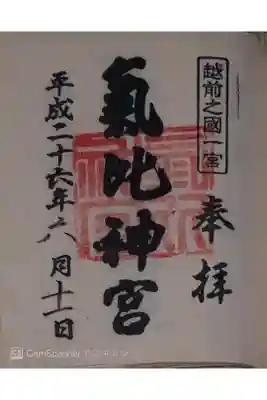 越前之國一宮
奉拝
氣比神宮
平成二十六年六月十一日
CamScanner